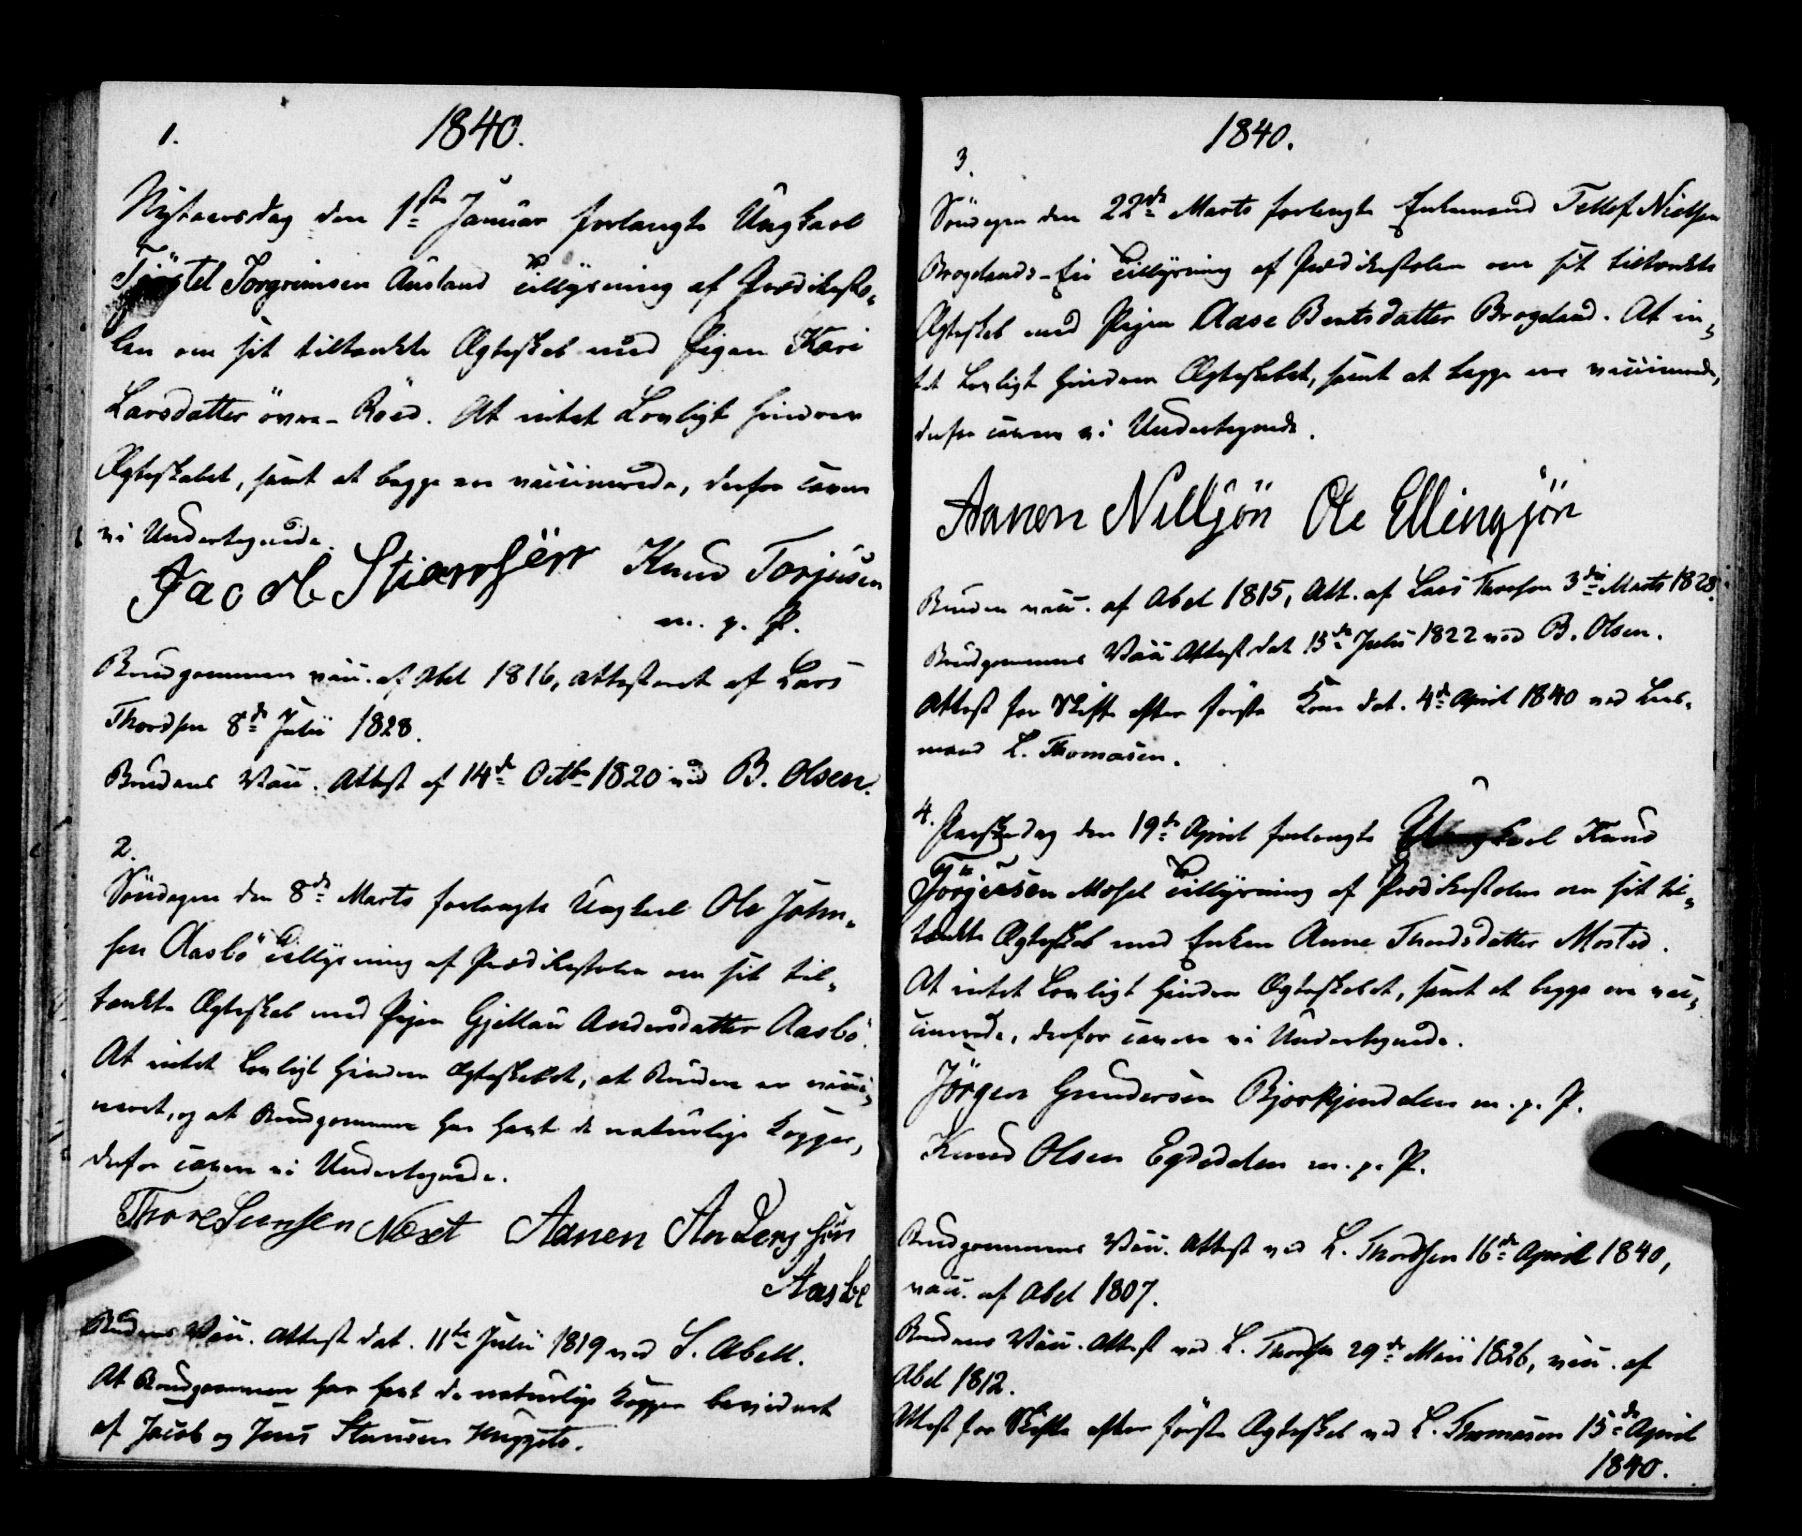 1840.
1.
Nytaarsdag den 1ste Januar forlangte Ungkarl
Tjöstel Torgrimsen Ausland Tillysning af Prædikesto-
len om sit tiltænkte Ægteskab med Pigen Kari
Larsdatter övre-Röed. At intet Lovligt hindrer
Ægteskabet, samt at begge ere vaccinerede, derfor cavere
vi Undertegnede.
Jacob Stiansen Knud Torjusen
m. p. P.
Brudgommen vacc. af Abel 1816, attesteret af Lars
Thordsen 8de Julii 1828.
Brudens Vacc. Attest af 14de Octbr 1820 ved B. Olsen.
2.
Söndagen den 8de Marts forlangte Ungkarl Ole John-
sen Aasbö Tillysning af Prædikestolen om sit til-
tænkte Ægteskab med Pigen Gjellau Andersdatter Aasbö.
At intet Lovligt hindrer Ægteskabet, at Bruden er vacci-
neret, og at Brudgommen har havt de naturlige Kopper,
derfor cavere vi Undertegnede.
Thore Næset Aanen Andersön
Aasbö
Brudens Vacc. Attest dat. 11te Julii 1819 ved S. Abell.
At Brudgommen har havt de naturlige Kopper bevidnet
af Jacob og Jens
1840.
3.
Söndagen den 22de Marts forlangte Enkemand Tellef Nielsen
Brogelands-Eie Tillysning af Prædikestolen om sit tiltænkte
Ægteskab med Pigen Aase Bentsdatter Brogeland. At in-
tet Lovligt hindrer Ægteskabet, samt at begge ere vaccinerede,
derfor cavere vi Undertegnede.
Aanen Nilsön Ole Ellingsön
Bruden vacc. af Abel 1815, Att. af Lars Thordsen 3die Marts 1828.
Brudgommens Vacc Attest dat 15de Julii 1822 ved B. Olsen.
Attest for Skifte efter förste Kone dat. 4de April 1840 ved Lens-
mand L. Thomasen.
4. Paaskedag den 19de April forlangte Ungkarl Knud
Törjusen Mosel Tillysning af Prædikestolen om sit til-
tænkte Ægteskab med Enken Anne Thordsdatter Mosted.
At intet Lovligt hindrer Ægteskabet, samt at begge ere vac-
cinerede, derfor cavere vi Undertegnede.
Jörgen Gundersen Bjorkjendalen m. p. P.
Knud Olsen Egdedalen m. p. P.
Brudgommens Vacc. Attest ved L. Thordsen 16de April 1840,
vacc. af Abel 1807.
Brudens Vacc. Attest ved L. Thordsen 29de Maii 1826, vacc. af
Abel 1812.
Attest for Skifte efter förste Ægteskab ved L. Thomasen 15de April
1840.